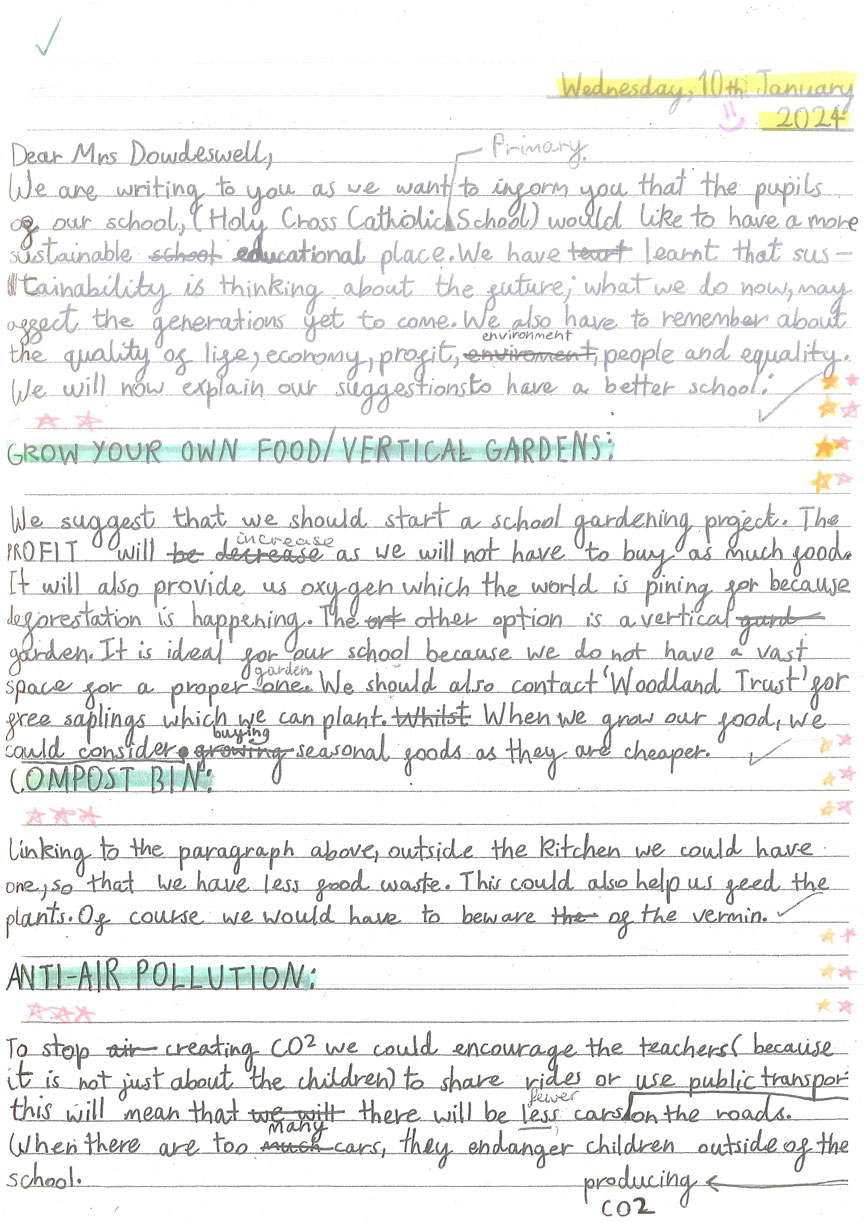 Wednesday, 10th January
2024
Dear Mrs Dowdeswell,
Primary.
We are writing to you as we want to inform you that the pupils
of our school, (Holy Cross Catholic School) would like to have a more
sustainable school educational place. We have teart learnt that sus-
tainability is thinking about the future; what we do now, may
affect the generations yet to come. We also have to remember about
environment
the quality of life, economy, profit, enviroment, people and equality.
We will now explain our suggestions to have a better school:
GROW YOUR OWN FOOD/VERTICAL GARDENS:
We suggest that we should start a school gardening project. The
increase
PROFIT will be decrease as we will not have to buy as much food.
It will also provide us oxygen which the world is pining for because
deforestation is happening. The ort other option is a vertical gard
garden. It is ideal for our school because we do not have a vast
garden
space for a proper one. We should also contact 'Woodland Trust' for
free saplings which we can plant. Whilst When we grow our food, we
buying
could consider growing seasonal goods as they are cheaper.
COMPOST BIN:
Linking to the paragraph above, outside the kitchen we could have
one, so that we have less food waste. This could also help us feed the
plants. Of course we would have to beware the of the vermin.
ANTI-AIR POLLUTION:
To stop air creating CO2 we could encourage the teachers (because
it is not just about the children) to share rides or use public transpor
fewer
this will mean that we will there will be less cars on the roads.
many
When there are too much cars, they endanger children outside of the
school.
producing
CO2